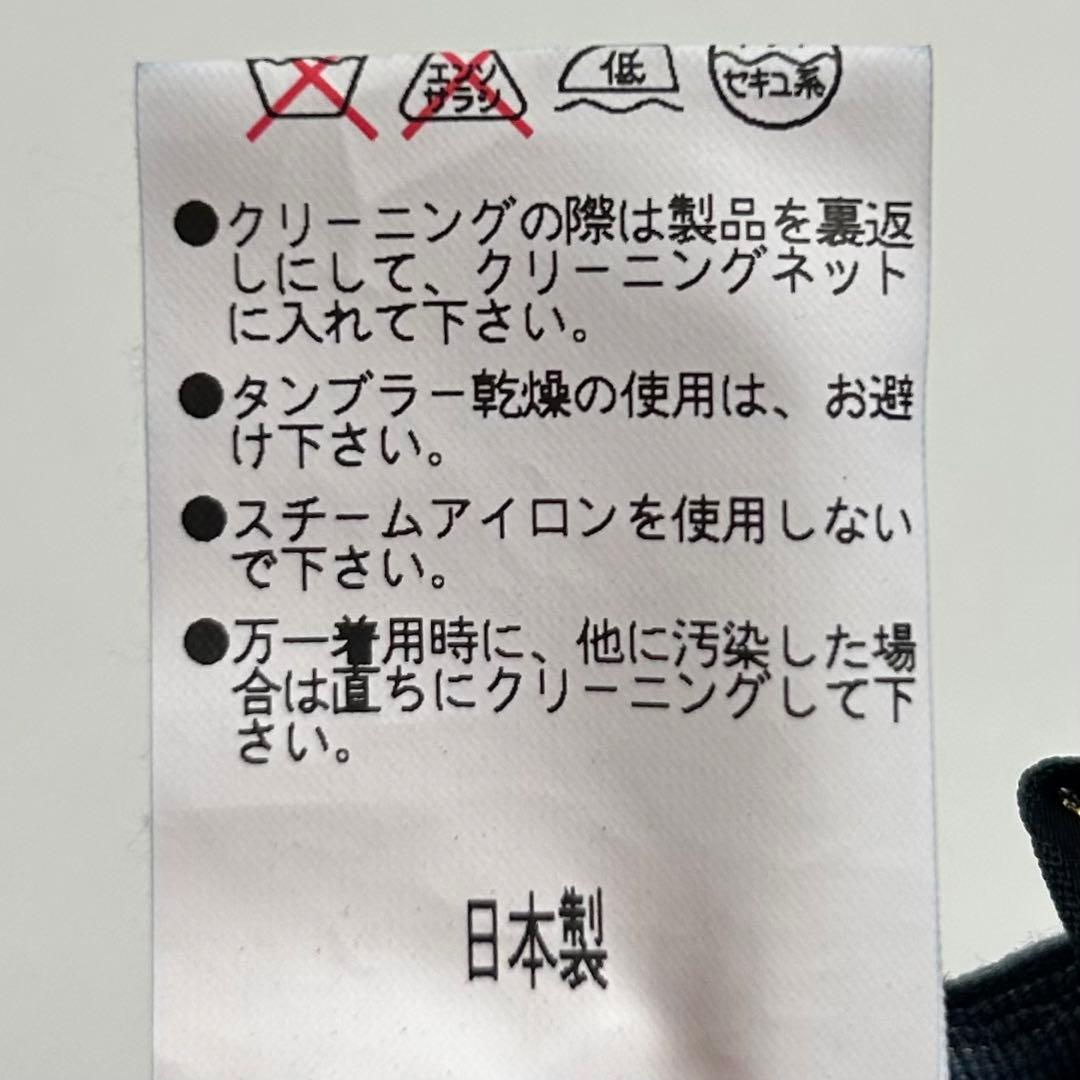 エンソ
サラシ
低
セキユ系
●クリーニングの際は製品を裏返
しにして、クリーニングネット
に入れて下さい。
●タンブラー乾燥の使用は、お避
け下さい。
●スチームアイロンを使用しない
で下さい。
●万一着用時に、他に汚染した場
合は直ちにクリーニングして下
さい。
日本製